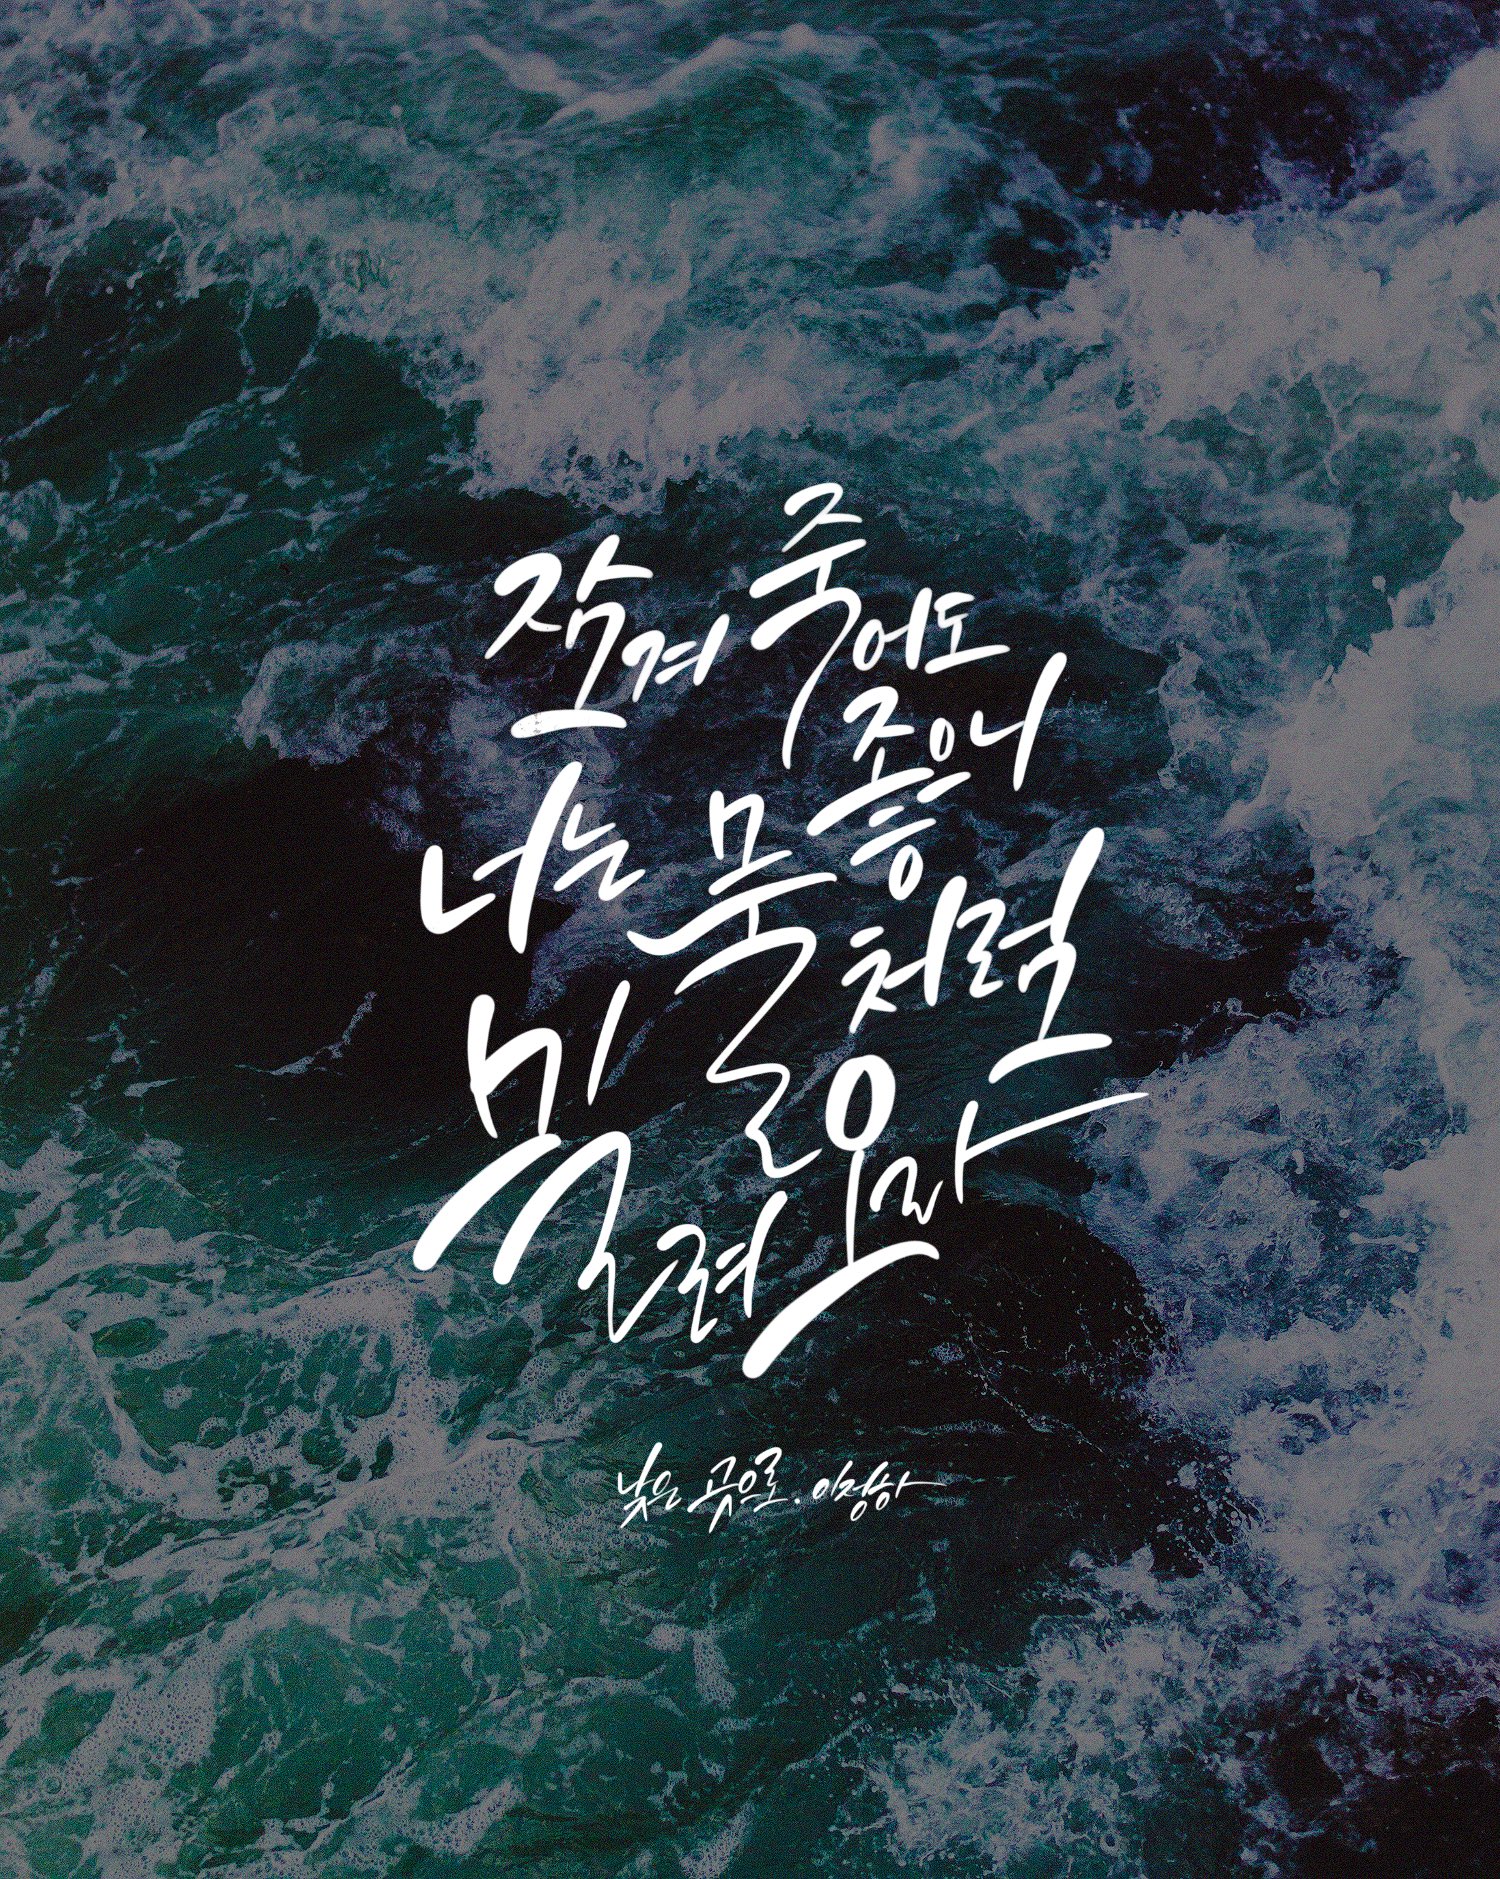 잠겨 죽어도
좋으니
너는 물처럼
밀려오라
낮은 곳으로. 이정하